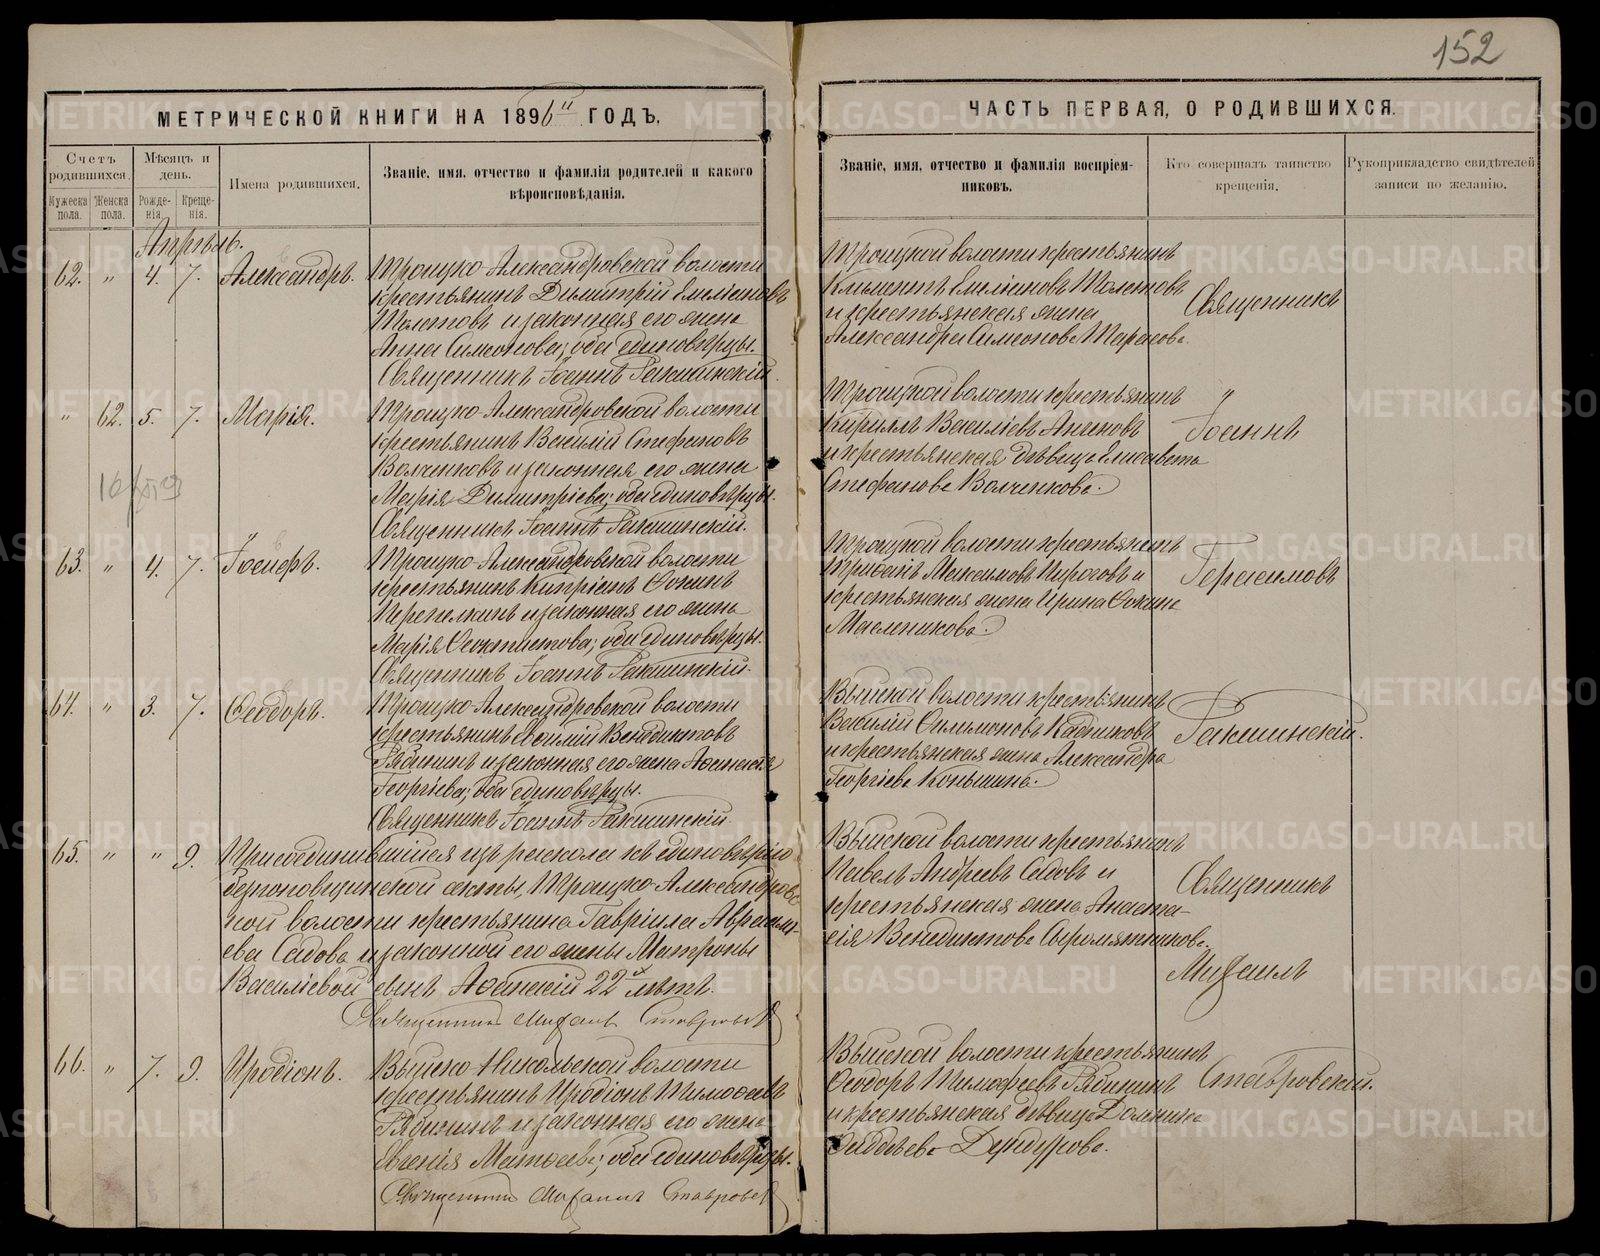 152
МЕТРИЧЕСКОЙ КНИГИ НА 1896й ГОДЪ.
Счетъ родившихся.
Мѣсяцъ и день.
Имена родившихся.
Званіе, имя, отчество и фамилія родителей и какого
вѣроисповѣданія.
Мужеска пола.
Женска пола.
Рожде-
нія.
Креще-
нія.
ЧАСТЬ ПЕРВАЯ, О РОДИВШИХСЯ.
Званіе, имя, отчество и фамилія воспріем-
никовъ.
Кто совершалъ таинство
крещенія.
Рукоприкладство свидѣтелей
записи по желанію.
Апрѣль.
62. " 4. 7. Александръ. Троицко-Александровской волости
крестьянинъ Димитрій Емеліановъ
Толстовъ и законная его жена
Анна Симонова; оба единовѣрцы.
Священникъ Іоаннъ Ракшинскій.
Троицкой волости крестьянинъ
Климентъ Емеліановъ Толстовъ
и крестьянская жена
Александра Симеонова
Священникъ
" 62. 5. 7. Марія. Троицко-Александровской волости
крестьянинъ Василій Стефановъ
Волченковъ и законная его жена
Марія Димитріева; оба единовѣрцы.
Священникъ Іоаннъ Ракшинскій.
Троицкой волости крестьянинъ
Кириллъ Василіевъ
и крестьянская дѣвица Елисавета
Стефанова Волченкова.
"
Іоаннъ
63. " 4. 7. Іосифъ. Троицко-Александровской волости
крестьянинъ Кипріанъ Ѳокинъ
Перепелкинъ и законная его жена
Марія Ѳеоктистова; оба единовѣрцы.
Священникъ Іоаннъ Ракшинскій.
Троицкой волости крестьянинъ
Максимовъ Пироговъ и
крестьянская жена Ирина Ѳокина
Масленикова.
Герасимовъ
64. " 3. 7. Ѳеодоръ. Троицко-Александровской волости
крестьянинъ Василій Венедиктовъ
Рябининъ и законная его жена Аѳанасія
Георгіева; оба единовѣрцы.
Священникъ Іоаннъ Ракшинскій.
Выйской волости крестьянинъ
Василій Филимоновъ Кадниковъ
и крестьянская жена Александра
Георгіева Коньшина.
Ракшинскій.
65. " " 9. Присоединившійся изъ раскола къ единовѣрію
безпоповщинской секты, Троицко-Александровс-
кой волости крестьянина Гавріила Авраам-
ева Садова и законной его жены Матроны
Василіевой сынъ Аѳанасій 22х лѣтъ.
Священникъ Михаилъ Ставровскій
Выйской волости крестьянинъ
Павелъ Андреевъ Садовъ и
крестьянская жена Анаста-
сія Венедиктова Сыромятникова.
Священникъ
Михаилъ
66. " 7. 9. Иродіонъ. Выйско-Никольской волости
крестьянинъ Иродіонъ Тимоѳеевъ
Рябининъ и законная его жена
Евгенія Матѳеева; оба единовѣрцы.
Священникъ Михаилъ Ставровскій
Выйской волости крестьянинъ
Ѳеодоръ Тимофеевъ Рябининъ
и крестьянская дѣвица Домника
Ставровскій.
METRIKI.GASO-URAL.RU